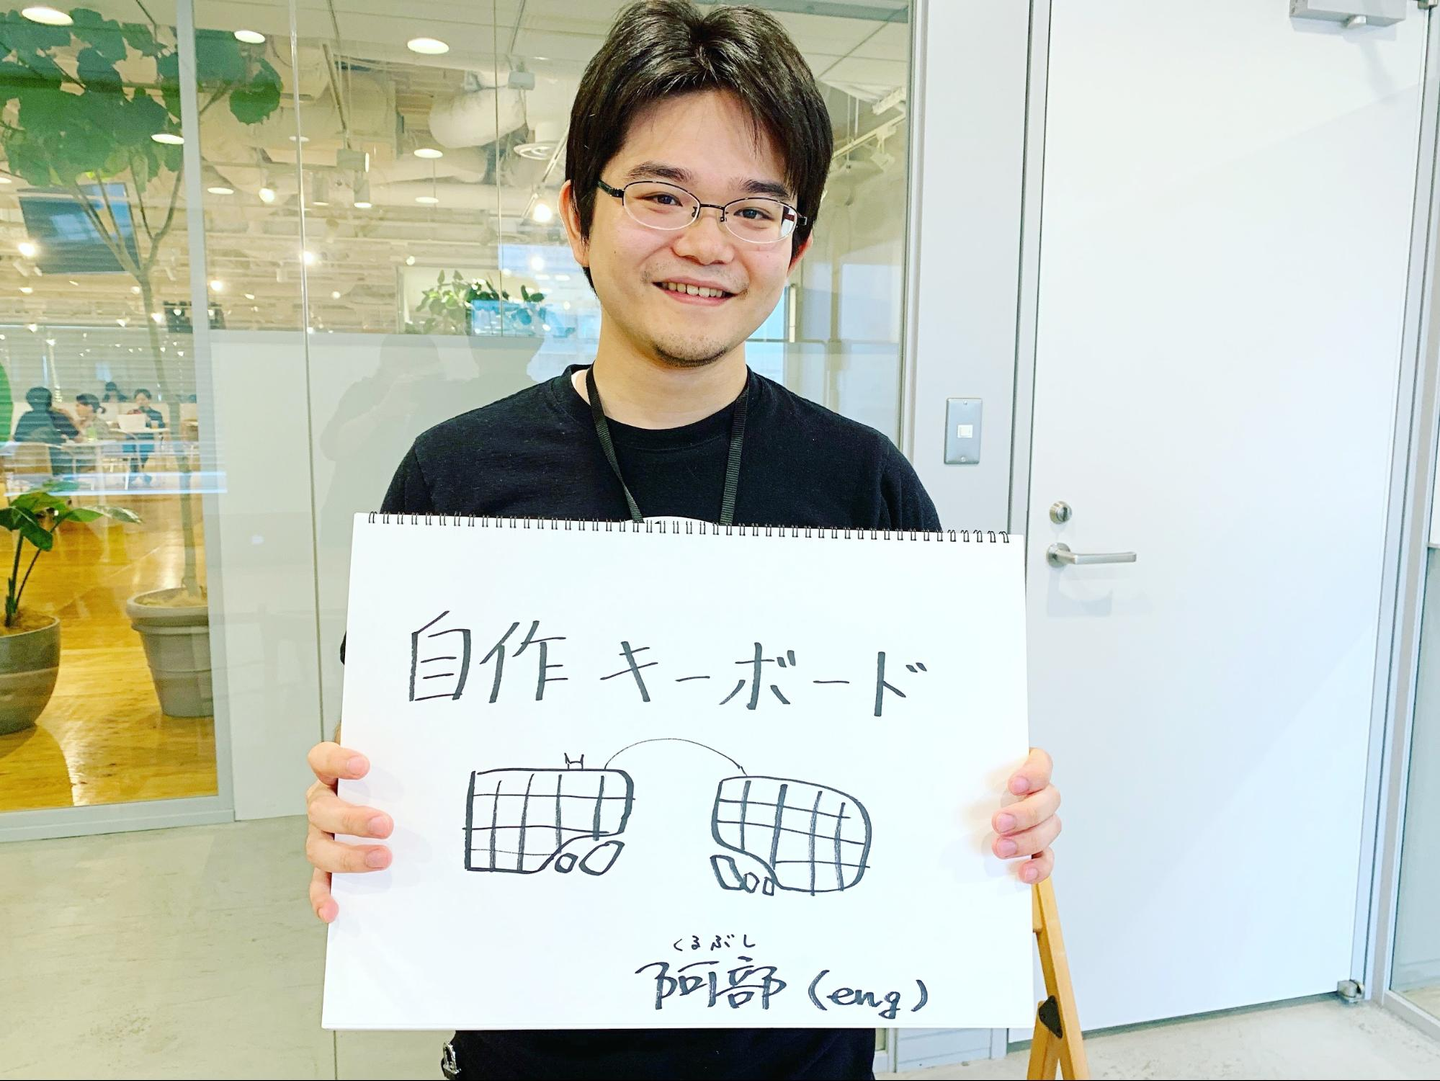 自作キーボード
くるぶし
阿部 (eng)